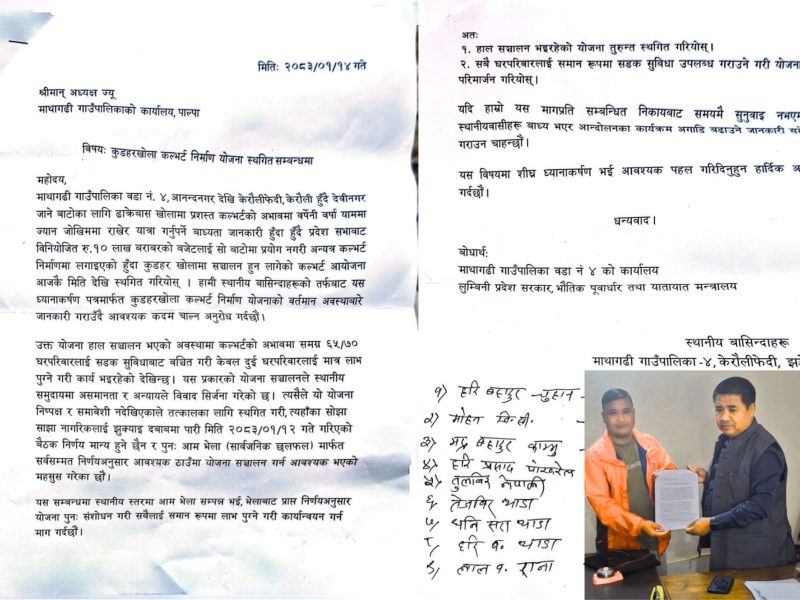 मितिः २०८३/०१/१४ गते
श्रीमान् अध्यक्ष ज्यू
माथागढी गाउँपालिकाको कार्यालय, पाल्पा
विषयः कुडहरखोला कल्भर्ट निर्माण योजना स्थगित सम्बन्धमा
महोदय,
माथागढी गाउँपालिका वडा नं. ४, आनन्दनगर देखि केरौलीफेदी, केरौली हुँदै देवीनगर
जाने बाटोका लागि ढाक्रेबास खोलामा प्रशस्त कल्भर्टको अभावमा बर्षेनी वर्षा याममा
ज्यान जोखिममा राखेर यात्रा गर्नुपर्ने बाध्यता जानकारी हुँदा हुँदै प्रदेश सभाबाट
विनियोजित रु.१० लाख बराबरको बजेटलाई सो बाटोमा प्रयोग नगरी अन्यत्र कल्भर्ट
निर्माणमा लगाइएको हुँदा कुडहर खोलामा सञ्चालन हुन लागेको कल्भर्ट आयोजना
आजकै मिति देखि स्थगित गरियोस् । हामी स्थानीय बासिन्दाहरूको तर्फबाट यस
ध्यानाकर्षण पत्रमार्फत कुडहरखोला कल्भर्ट निर्माण योजनाको वर्तमान अवस्थाबारे
जानकारी गराउँदै आवश्यक कदम चाल्न अनुरोध गर्दछौं।
उक्त योजना हाल सञ्चालन भएको अवस्थामा कल्भर्टको अभावमा समग्र ६५/७०
घरपरिवारलाई सडक सुविधाबाट वञ्चित गरी केवल दुई घरपरिवारलाई मात्र लाभ
पुग्ने गरी कार्य भइरहेको देखिन्छ। यस प्रकारको योजना सञ्चालनले स्थानीय
समुदायमा असमानता र अन्यायले विवाद सिर्जना गरेको छ। त्यसैले यो योजना
निष्पक्ष र समावेशी नदेखिएकाले तत्कालका लागि स्थगित गरी, त्यहाँका सोझा
साझा नागरिकलाई झुक्याइ दबाबमा पारी मिति २०८३/०१/१२ गते गरिएको
बैठक निर्णय मान्य हुने छैन र पुनः आम भेला (सार्वजनिक छलफल) मार्फत
सर्वसम्मत निर्णयअनुसार आवश्यक ठाउँमा योजना सञ्चालन गर्न आवश्यक भएको
महसुस गरेका छौं।
यस सम्बन्धमा स्थानीय स्तरमा आम भेला सम्पन्न भई, भेलाबाट प्राप्त निर्णयअनुसार
योजना पुनः संशोधन गरी सबैलाई समान रूपमा लाभ पुग्ने गरी कार्यान्वयन गर्न
माग गर्दछौं।
अतः
१. हाल सञ्चालन भइरहेको योजना तुरुन्त स्थगित गरियोस्।
२. सबै घरपरिवारलाई समान रूपमा सडक सुविधा उपलब्ध गराउने गरी योजना
परिमार्जन गरियोस्।
यदि हाम्रो यस मागप्रति सम्बन्धित निकायबाट समयमै सुनुवाइ नभएमा
स्थानीयवासीहरू बाध्य भएर आन्दोलनका कार्यक्रम अगाडि बढाउने जानकारी
गराउन चाहन्छौं।
यस विषयमा शीघ्र ध्यानाकर्षण भई आवश्यक पहल गरिदिनुहुन हार्दिक
गर्दछौं।
धन्यवाद।
बोधार्थः
माथागढी गाउँपालिका वडा नं ४ को कार्यालय
लुम्बिनी प्रदेश सरकार, भौतिक पूर्वाधार तथा यातायात मन्त्रालय
स्थानीय बासिन्दाहरू
माथागढी गाउँपालिका -४, केरौलीफेदी,
१) हरि बहादुर
२) मोहन वि.सी.
३) बहादुर
४) हरि प्रसाद पोखरेल
५) तुलबिर नेपाली
६) तेजबिर थाडा
७) थाडा
८) हरि ब. थाडा
९) लाल ब. राना